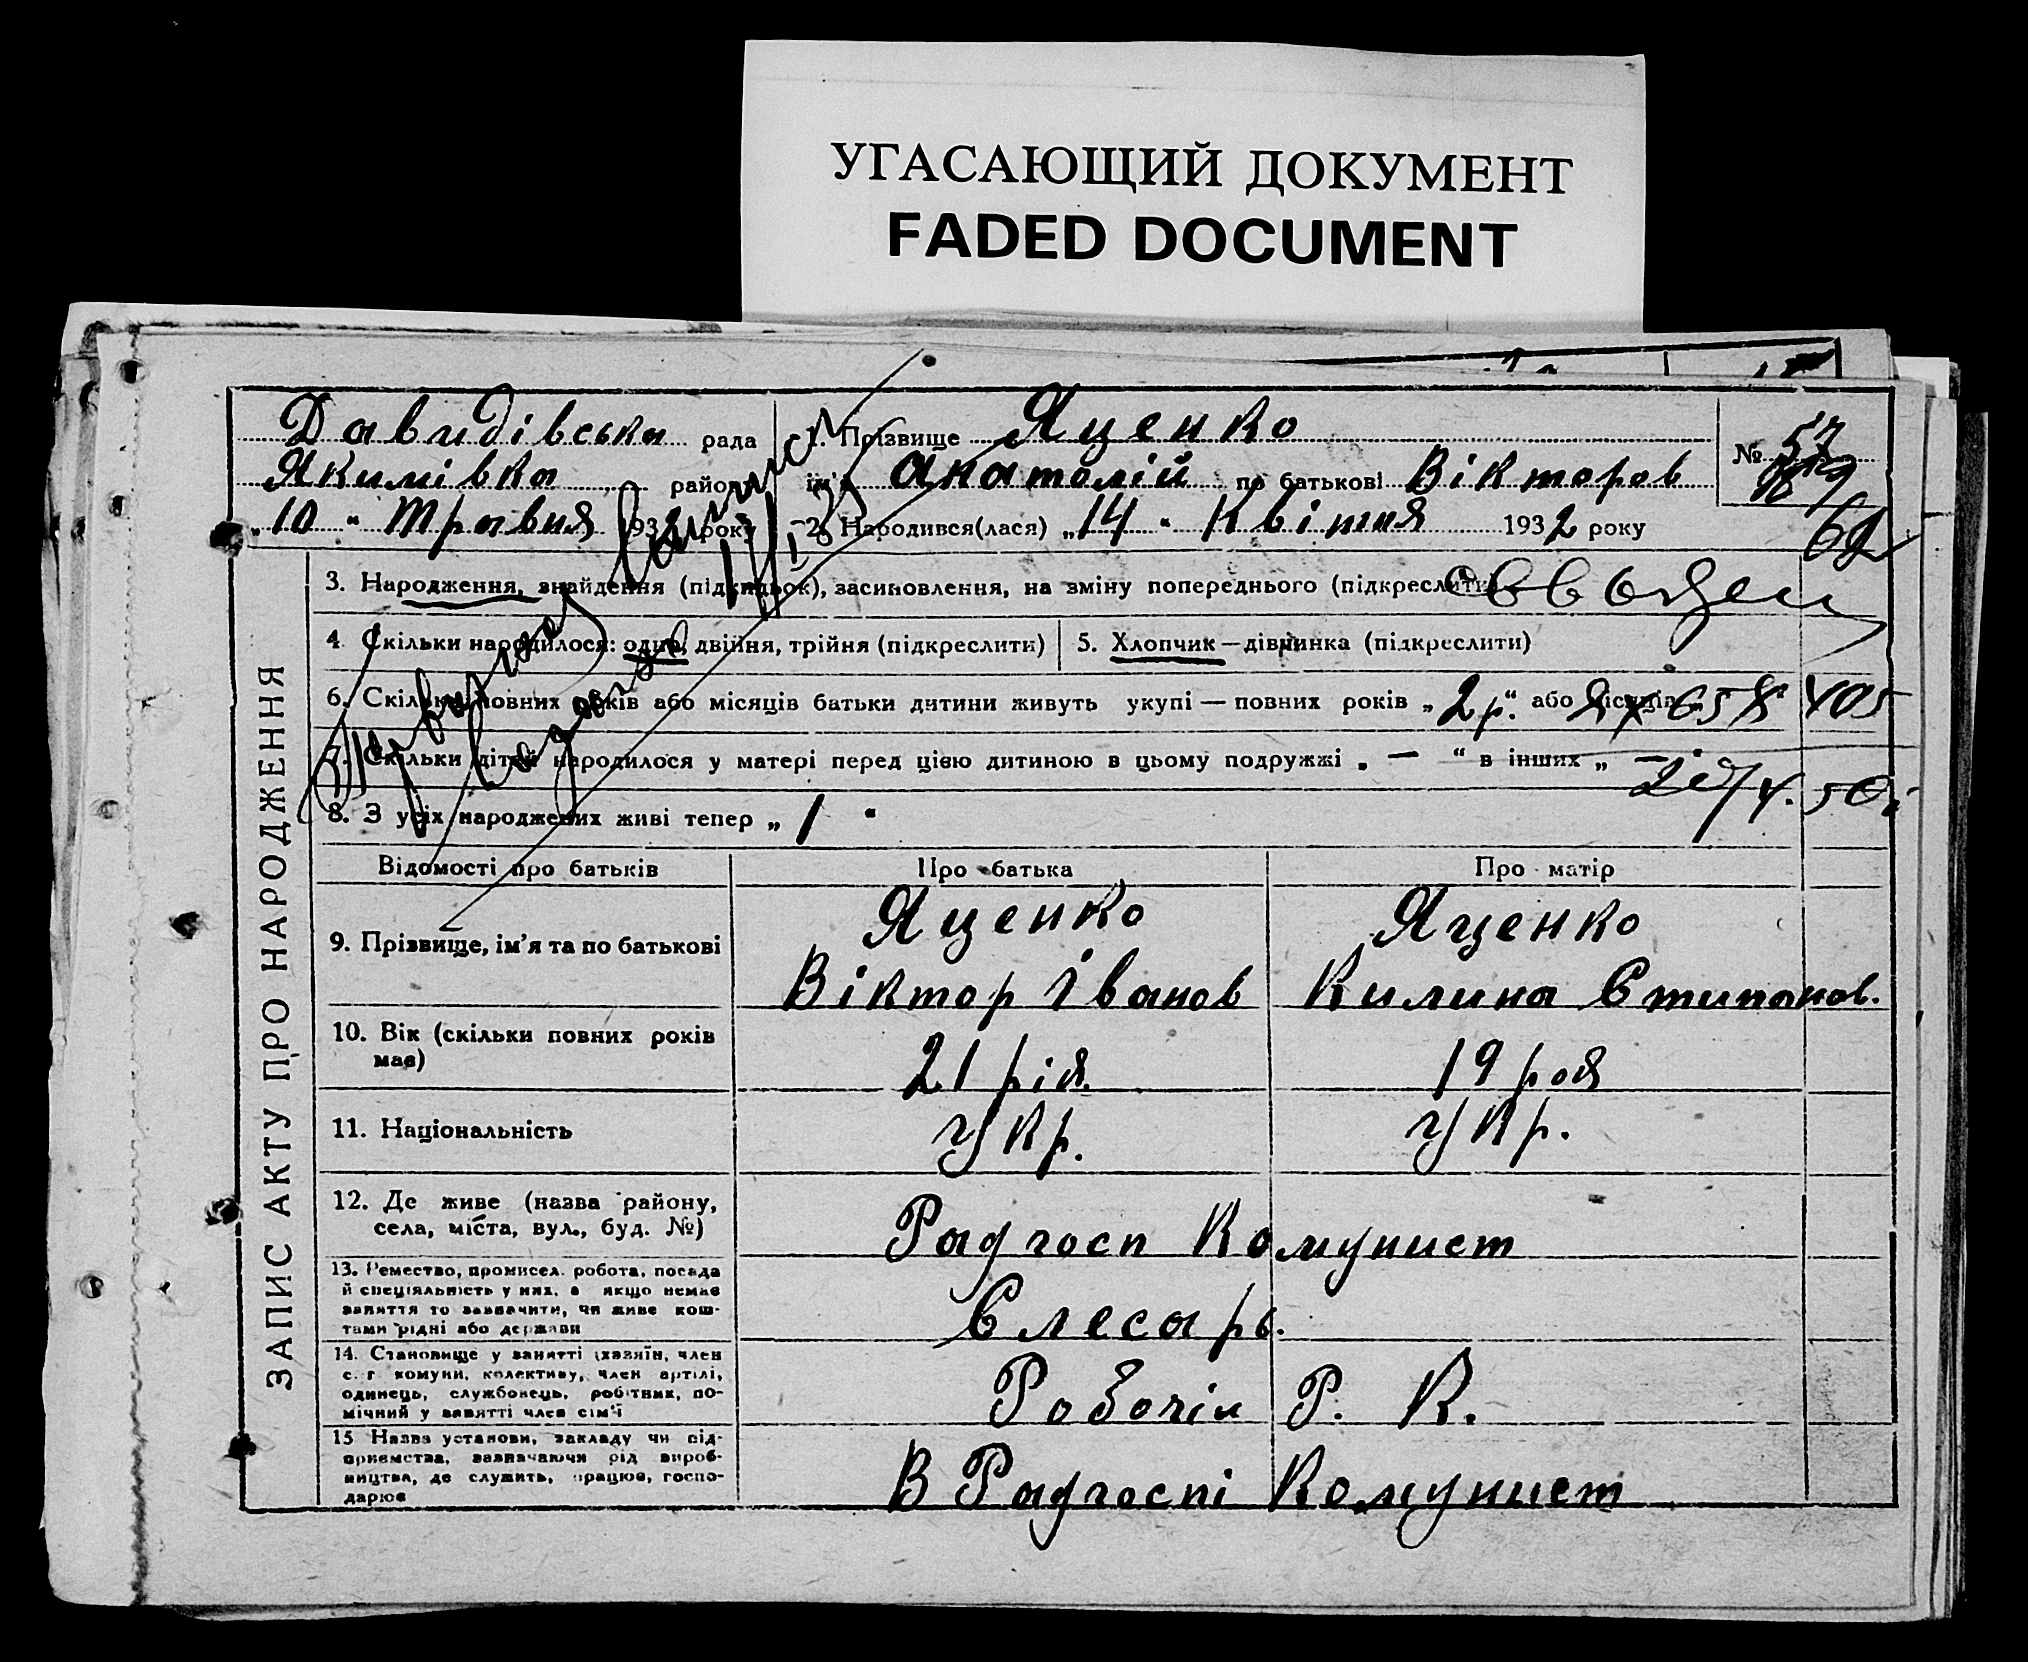 УГАСАЮЩИЙ ДОКУМЕНТ
FADED DOCUMENT
Давидівська рада
Якимівка район
„10“ Травня 1932 року
1. Прізвище Яценко
ім'я Анатолій по батькові Вікторов
№ 57
2. Народився(лася) „14“ Квітня 1932 року
62
ЗАПИС АКТУ ПРО НАРОДЖЕННЯ
3. Народження, знайдення (підкидьок), засиновлення, на зміну попереднього (підкреслити)
4. Скільки народилося: одно, двійня, трійня (підкреслити)
5. Хлопчик — дівчинка (підкреслити)
6. Скільки повних років або місяців батьки дитини живуть укупі — повних років „2 р.“ або місяців
7. Скільки дітей народилося у матері перед цією дитиною в цьому подружжі „ — “ в інших „ —
8. З усіх народжених живі тепер „ 1 “
Відомості про батьків
Про батька
Про матір
9. Прізвище, ім'я та по батькові
Яценко
Віктор Іванов
Яценко
Килина Стипанов.
10. Вік (скільки повних років має)
21 рік.
19 рок
11. Національність
Укр.
Укр.
12. Де живе (назва району,
села, міста, вул., буд. №)
Радгосп Комунист
13. Ремество, промисел. робота, посада
й спеціяльність у них, а якщо немає
заняття то зазначити, чи живе кош-
тами рідні або держави
Слесарь.
14. Становище у занятті (хазяїн, член
с. г комуни, колективу, член артілі,
одинець, службовець, робітник, по-
мічний у занятті член сім'ї
Робочій Р. К.
15 Назва установи, закладу чи під-
приємства, зазначаючи рід вироб-
ництва, де служить, працює, госпо-
дарює
В Радгоспі Комунист